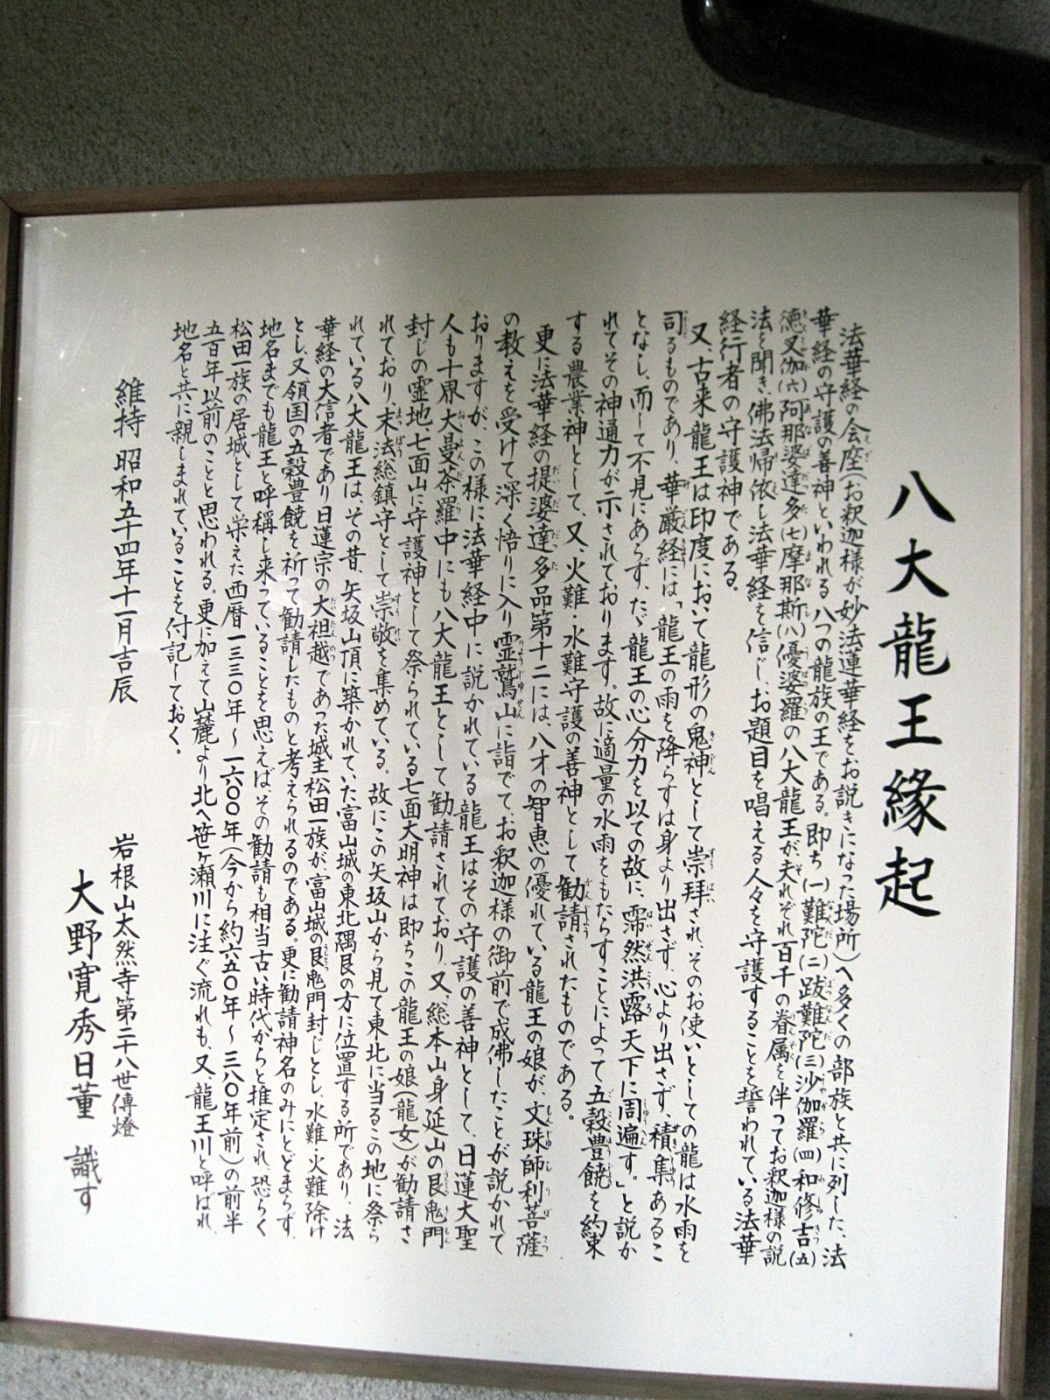 八大龍王縁起
法華経の会座(お釈迦様が妙法蓮華経をお説きになった場所)へ多くの部族と共に列した、法
華経の守護の善神といわれる八つの龍族の王である。即ち(一)難陀(二)跋難陀(三)沙伽羅(四)和修吉(五)
徳叉伽(六)阿那婆達多(七)摩那斯(八)優婆羅の八大龍王が夫れぞれ百千の眷属を伴ってお釈迦様の説
法を聞き、佛法帰依し法華経を信じ、お題目を唱える人々を守護することを誓われている法華
経行者の守護神である。
又、古来龍王は印度において龍形の鬼神として崇拝され、そのお使いとしての龍は水雨を
司るものであり、華厳経には「龍王の雨を降らすは身より出さず、心より出さず、積集あるこ
となし、而して不見にあらず、たゞ龍王の心分力を以ての故に、霈然洪露天下に周遍す。」と説か
れてその神通力が示されております。故に適量の水雨をもたらすことによって五穀豊饒を約束
する農業神として、又、火難・水難守護の善神として勧請されたものである。
更に法華経の提婆達多品第十二には、八才の智恵の優れている龍王の娘が、文珠師利菩薩
の教えを受けて深く悟りに入り霊鷲山に詣でて、お釈迦様の御前で成佛したことが説かれて
おりますが、この様に法華経中に説かれている龍王はその守護の善神として、日蓮大聖
人も十界大曼荼羅中にも八大龍王として勧請されており、又、総本山身延山の艮鬼門
封じの霊地、七面山に守護神として祭られている七面大明神は即ちこの龍王の娘(龍女)が勧請さ
れており、末法総鎮守として崇敬を集めている。故にこの矢坂山から見て東北に当るこの地に祭ら
れている八大龍王は、その昔、矢坂山頂に築かれていた富山城の東北隅艮の方に位置する所であり、法
華経の大信者であり日蓮宗の大祖越であった城主松田一族が、富山城の艮鬼門封じとし、水難・火難除け
とし、又領国の五穀豊饒を祈って勧請したものと考えられるのである。更に勧請神名のみにとどまらず、
地名までも龍王と呼称し来っていることを思えば、その勧請も相当古い時代からと推定され、恐らく
松田一族の居城として栄えた西暦一三三〇年〜一六〇〇年(今から約六五〇年〜三八〇年前)の前半
五百年以前のことと思われる。更に加えて山麓より北へ笹ヶ瀬川に注ぐ流れも、又龍王川と呼ばれ、
地名と共に親しまれていることを付記しておく。
維持 昭和五十四年十一月吉辰
岩根山太然寺第二十八世傳燈
大野寛秀日董 識す